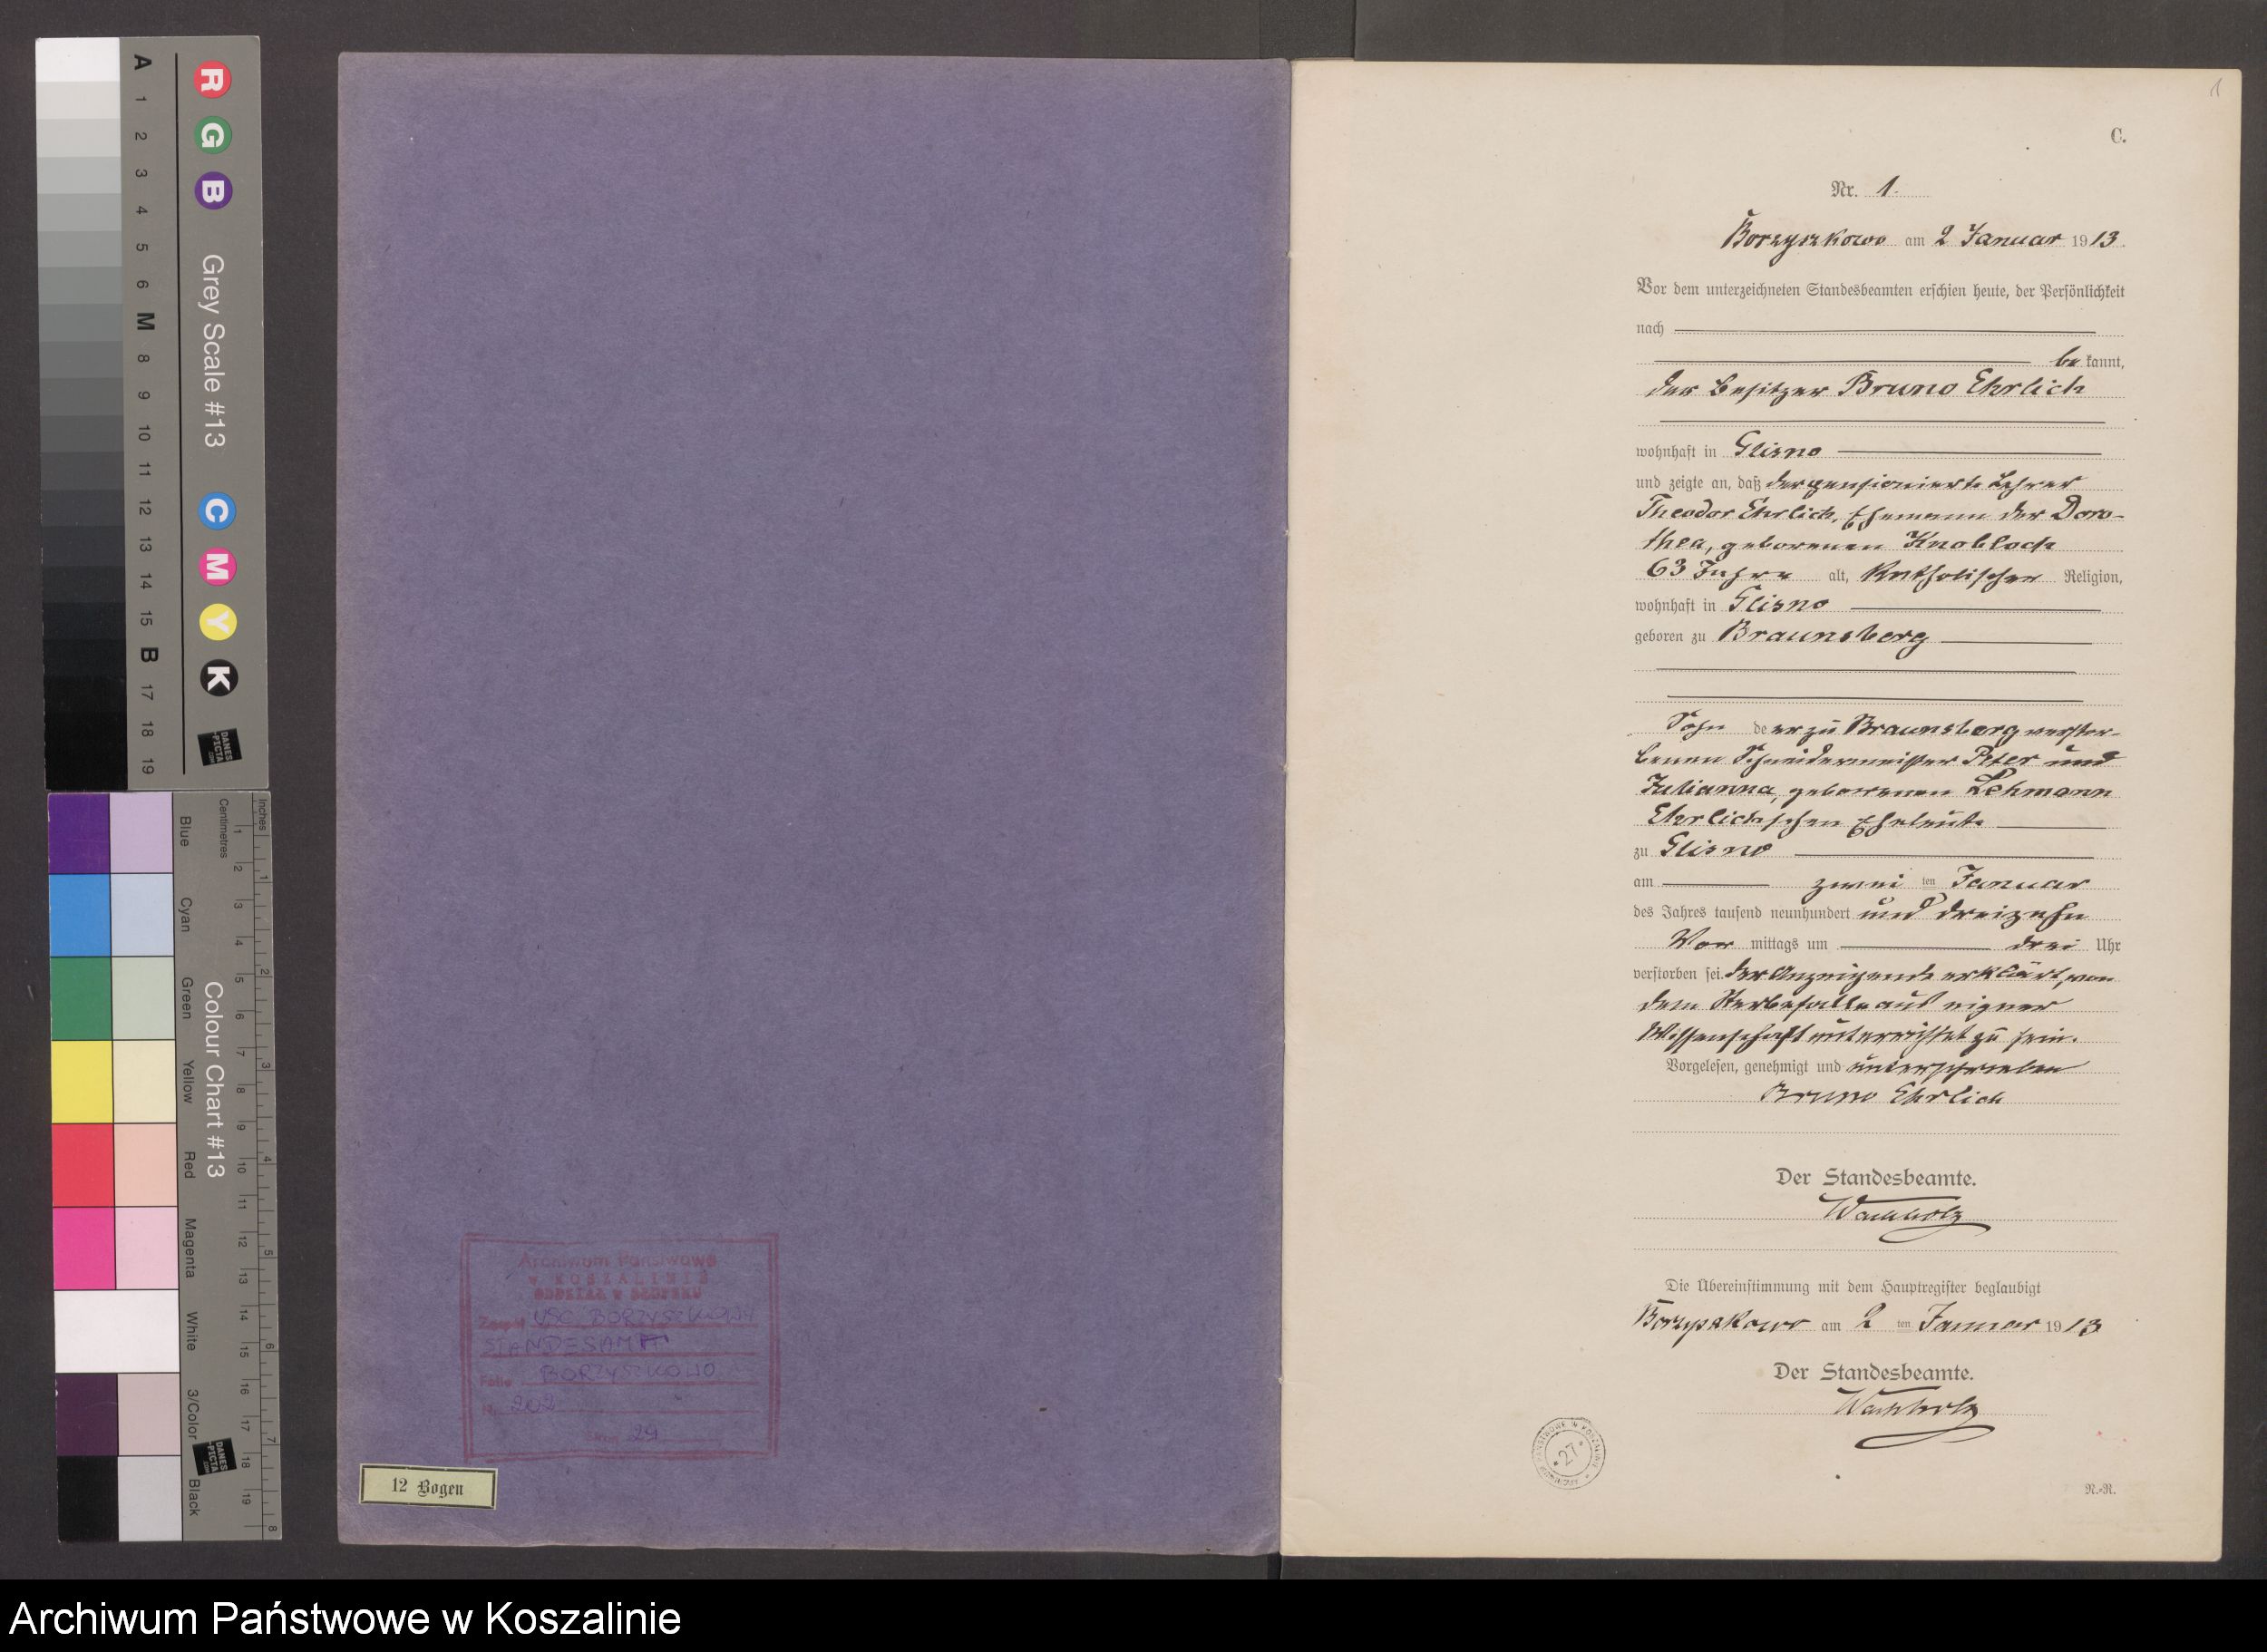 A 1 2 3 4 5 6 M 8 9 10 11 12 13 14 15 B 17 18 19
R G B
Grey Scale #13
C M Y K
DANES PICTA .COM
Blue Cyan Green Yellow Red Magenta White 3/Color Black
Centimetres Inches
Colour Chart #13
1 2 3 4 5 6 7 8 9 10 11 12 13 14 15 16 17 18 19
1 2 3 4 5 6 7 8
DANES PICTA .COM
Archiwum Państwowe
w KOSZALINIE
ODDZIAŁ w SŁUPSKU
Zespół USC BORZYSZKOWY
STANDESAMT
BORZYSZKOWO
Nr 202
24
12 Bogen
1
C.
Nr. 1.
Borzyszkowo am 2 Januar 1913.
Vor dem unterzeichneten Standesbeamten erschien heute, der Persönlichkeit
nach
be kannt,
der Besitzer Bruno Ehrlich
wohnhaft in Glisno
und zeigte an, daß der pensionierte Lehrer
Theodor Ehrlich, Ehemann der Doro-
thea, geborenen Knobloch
63 Jahre alt, katholischer Religion,
wohnhaft in Glisno
geboren zu Braunsberg
Sohn de er zu Braunsberg verstor-
benen Schneidermeister Peter und
Julianna, geborenen Lehmann
Ehrlich'schen Eheleute
zu Glisno
am zwei ten Januar
des Jahres tausend neunhundert und dreizehn
Vor mittags um drei Uhr
verstorben sei. Der Anzeigende erklärt, von
dem Sterbefalle aus eigner
Wissenschaft unterrichtet zu sein.
Vorgelesen, genehmigt und unterschrieben
Bruno Ehrlich
Der Standesbeamte.
Wachholz
Die Übereinstimmung mit dem Hauptregister beglaubigt
Borzyszkowo am 2 ten Januar 1913
Der Standesbeamte.
Wachholz
27
N.-R.
Archiwum Państwowe w Koszalinie